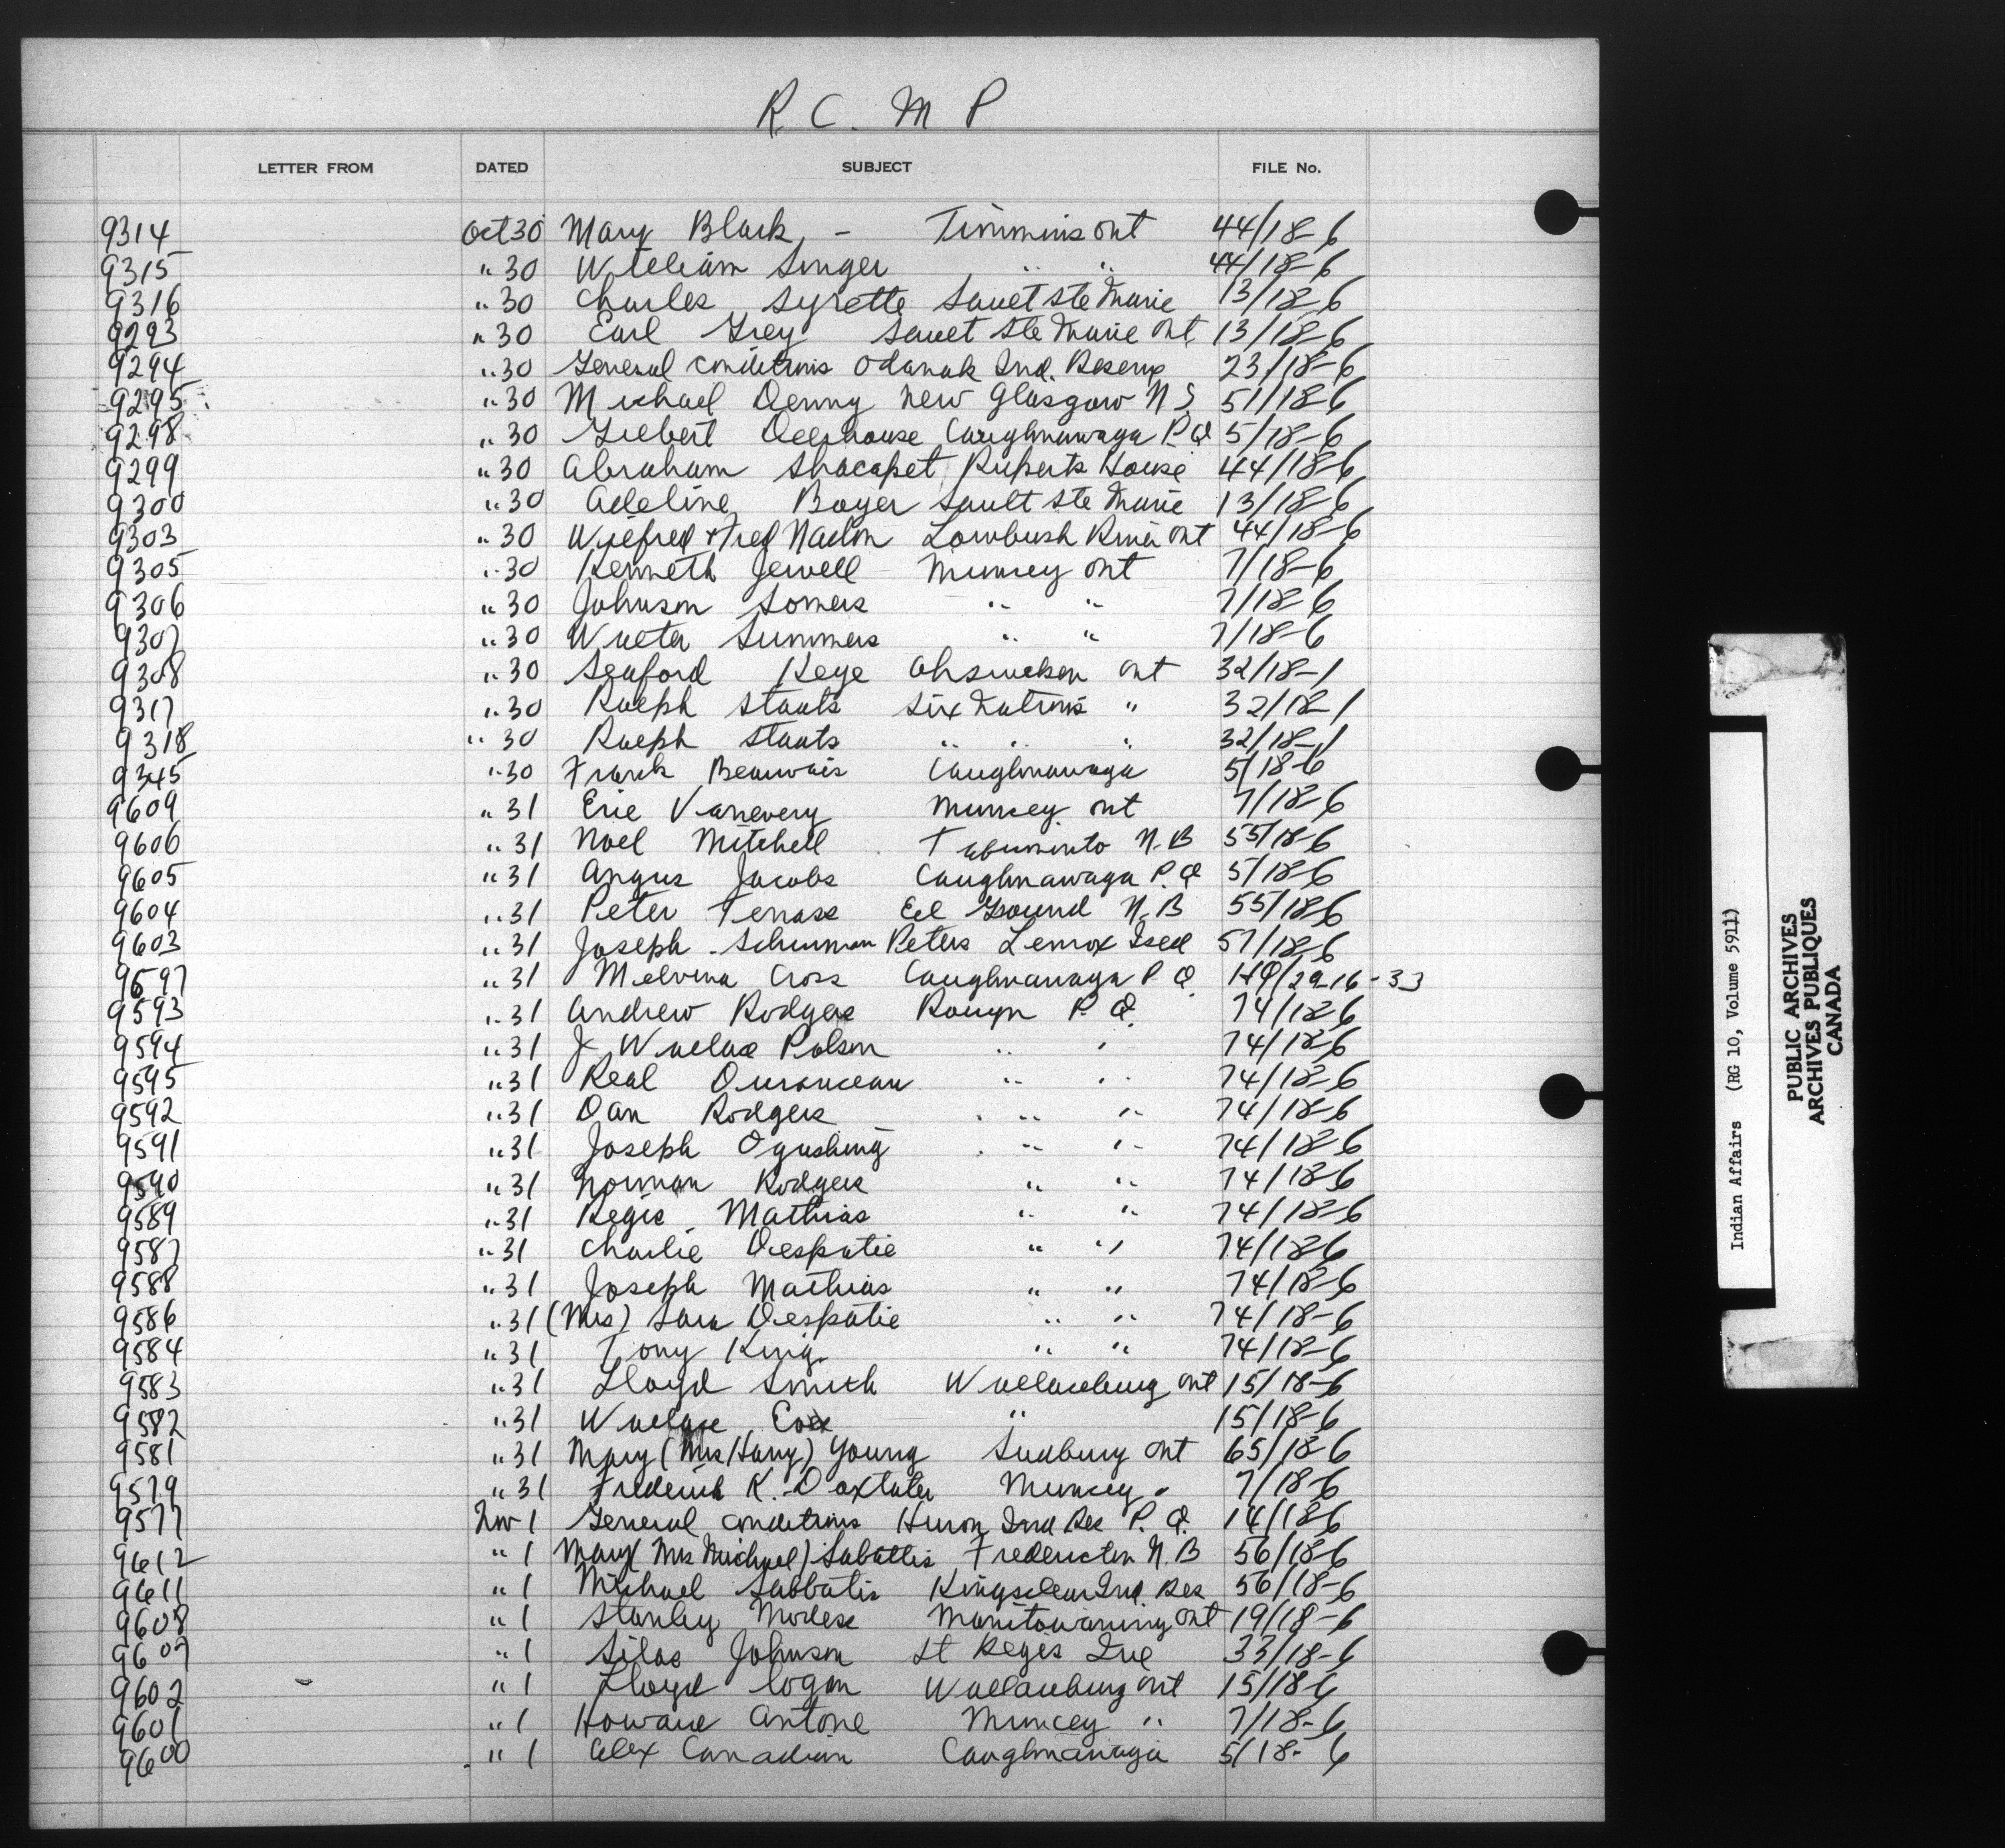 R. C. M P
LETTER FROM DATED SUBJECT FILE No.
9314 Oct 30 Mary Black, - Timmins Ont 44/18-6
9315 " 30 William Singer " " 44/18-6
9316 " 30 Charles Syrette Sault Ste Marie 13/18-6
9293 " 30 Earl Grey Sault Ste Marie Ont. 13/18-6
9294 " 30 General conditions Odanak Ind. Reserve 23/18-6
9295 " 30 Michael Denny New Glasgow N S. 51/18-6
9298 " 30 Gilbert Delehouse Caughnawaga P.Q 5/18-6
9299 " 30 Abraham Shacapet Ruperts House 44/18-6
9300 " 30 Adeline Boyer Sault Ste Marie 13/18-6
9303 " 30 Wilfred & Fred Nadon Lowbush River Ont 44/18-6
9305 " 30 Kenneth Jewell Muncey Ont 7/18-6
9306 " 30 Johnson Somers " " 7/18-6
9307 " 30 Walter Summers " " 7/18-6
9308 " 30 Seaford Keye Ohsweken Ont 32/18-1
9317 " 30 Ralph Staats Six Nations " 32/18-1
9318 " 30 Ralph Staats " " " 32/18-1
9345 " 30 Frank Beauvais Caughnawaga 5/18-6
9609 " 31 Eric Vanevery Muncey Ont 7/18-6
9606 " 31 Noel Mitchell N.B 55/18-6
9605 " 31 Angus Jacobs Caughnawaga P.Q 5/18-6
9604 " 31 Peter Tenass Eel Ground N.B 55/18-6
9603 " 31 Joseph Schurman Peters Lennox Isld 57/18-6
9597 " 31 Melvina Cross Caughnawaga P Q. HQ/29-16-33
9593 " 31 Andrew Rodgers Rouyn P. Q. 74/18-6
9594 " 31 J Wallace Polson " " 74/18-6
9595 " 31 Real Duranceau " " 74/18-6
9592 " 31 Dan Rodgers " " 74/18-6
9591 " 31 Joseph Ogushing " " 74/18-6
9590 " 31 Norman Rodgers " " 74/18-6
9589 " 31 Regis Mathias " " 74/18-6
9587 " 31 Charlie Despatie " " 74/18-6
9588 " 31 Joseph Mathias " " 74/18-6
9586 " 31 (Mrs) Sam Despatie " " 74/18-6
9584 " 31 Tony King. " " 74/18-6
9583 " 31 Lloyd Smith Wallaceburg Ont 15/18-6
9582 " 31 Wallace " 15/18-6
9581 " 31 Mary (Mrs Harry) Young Sudbury Ont 65/18-6
9579 " 31 Frederick K. Doxtater Muncey " 7/18-6
9577 Nov 1 General conditions Huron Ind Res P. Q. 14/18-6
9612 " 1 Mary (Mrs Michael) Sabattis Fredericton N.B 56/18-6
9611 " 1 Michael Sabbatis Kingsclear Ind. Res 56/18-6
9608 " 1 Stanley Modess Manitowaning Ont 19/18-6
9607 " 1 Silas Johnson St Regis Isle 33/18-6
9602 " 1 Lloyd Logan Wallaceburg Ont 15/18-6
9601 " 1 Howard Antone Muncey " 7/18-6
9600 " 1 Alex Canadian Caughnawaga 5/18-6
Indian Affairs (RG 10, Volume 5911)
PUBLIC ARCHIVES
ARCHIVES PUBLIQUES
CANADA